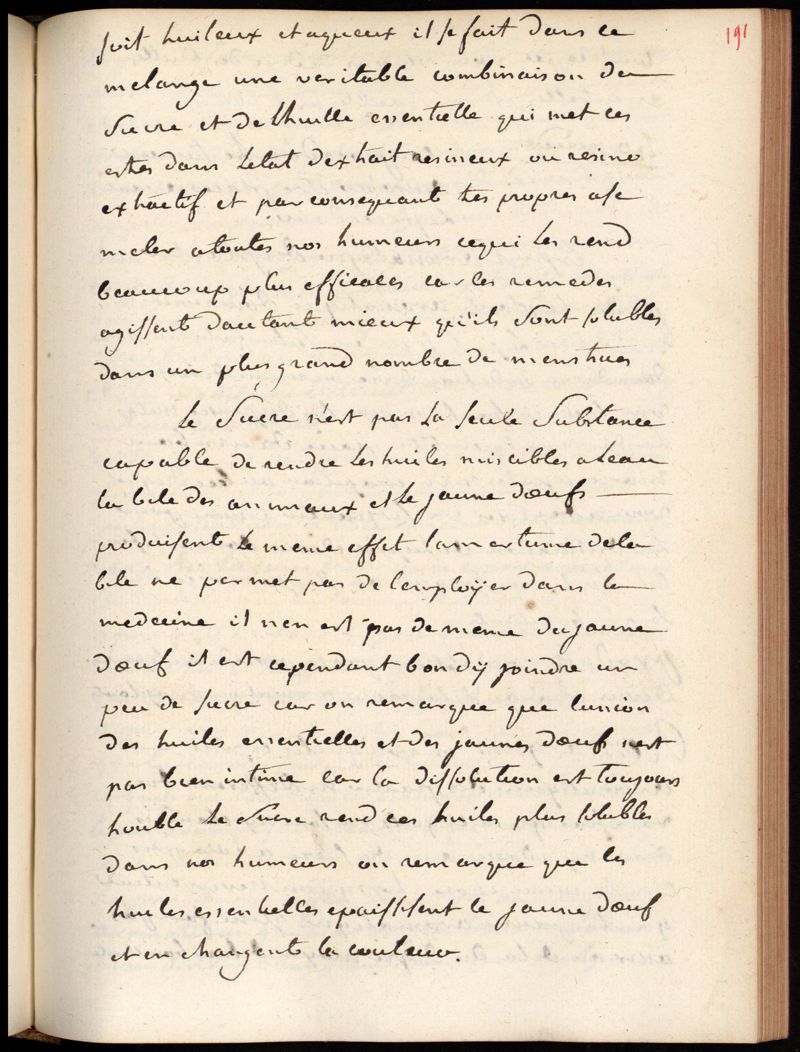 191
soit huileux et aqueux il se fait dans ce
melange une veritable combinaison du
Sucre et de Lhuille essentielle qui met ces
estres dans Letat dextrait resineux ou resino
extractif et par consequant tres propres a se
meler atoutes nos humeurs cequi les rend
beaucoup plus efficaces car les remedes
agissent dautant mieux qu'ils sont solubles
dans un plus grand nombre de menstrues
Le Sucre n'est pas La seule Substance
capable de rendre Les huiles miscibles a Leau
la bile des animaux et Le jaune dœufs
produisent Le meme effet lamertume dela
bile ne permet pas de lemployer dans la
medecine il nen est pas de meme du jaune
dœuf il est cependant bon dij joindre un
peu de sucre car on remarque que lunion
des huiles essentielles et des jaunes dœufs nest
pas bien intime car la dissolution est toujours
trouble Le Sucre rend ces huiles plus solubles
dans nos humeurs on remarque que les
huiles essentielles epaississent le jaune dœuf
et en changent la couleur.